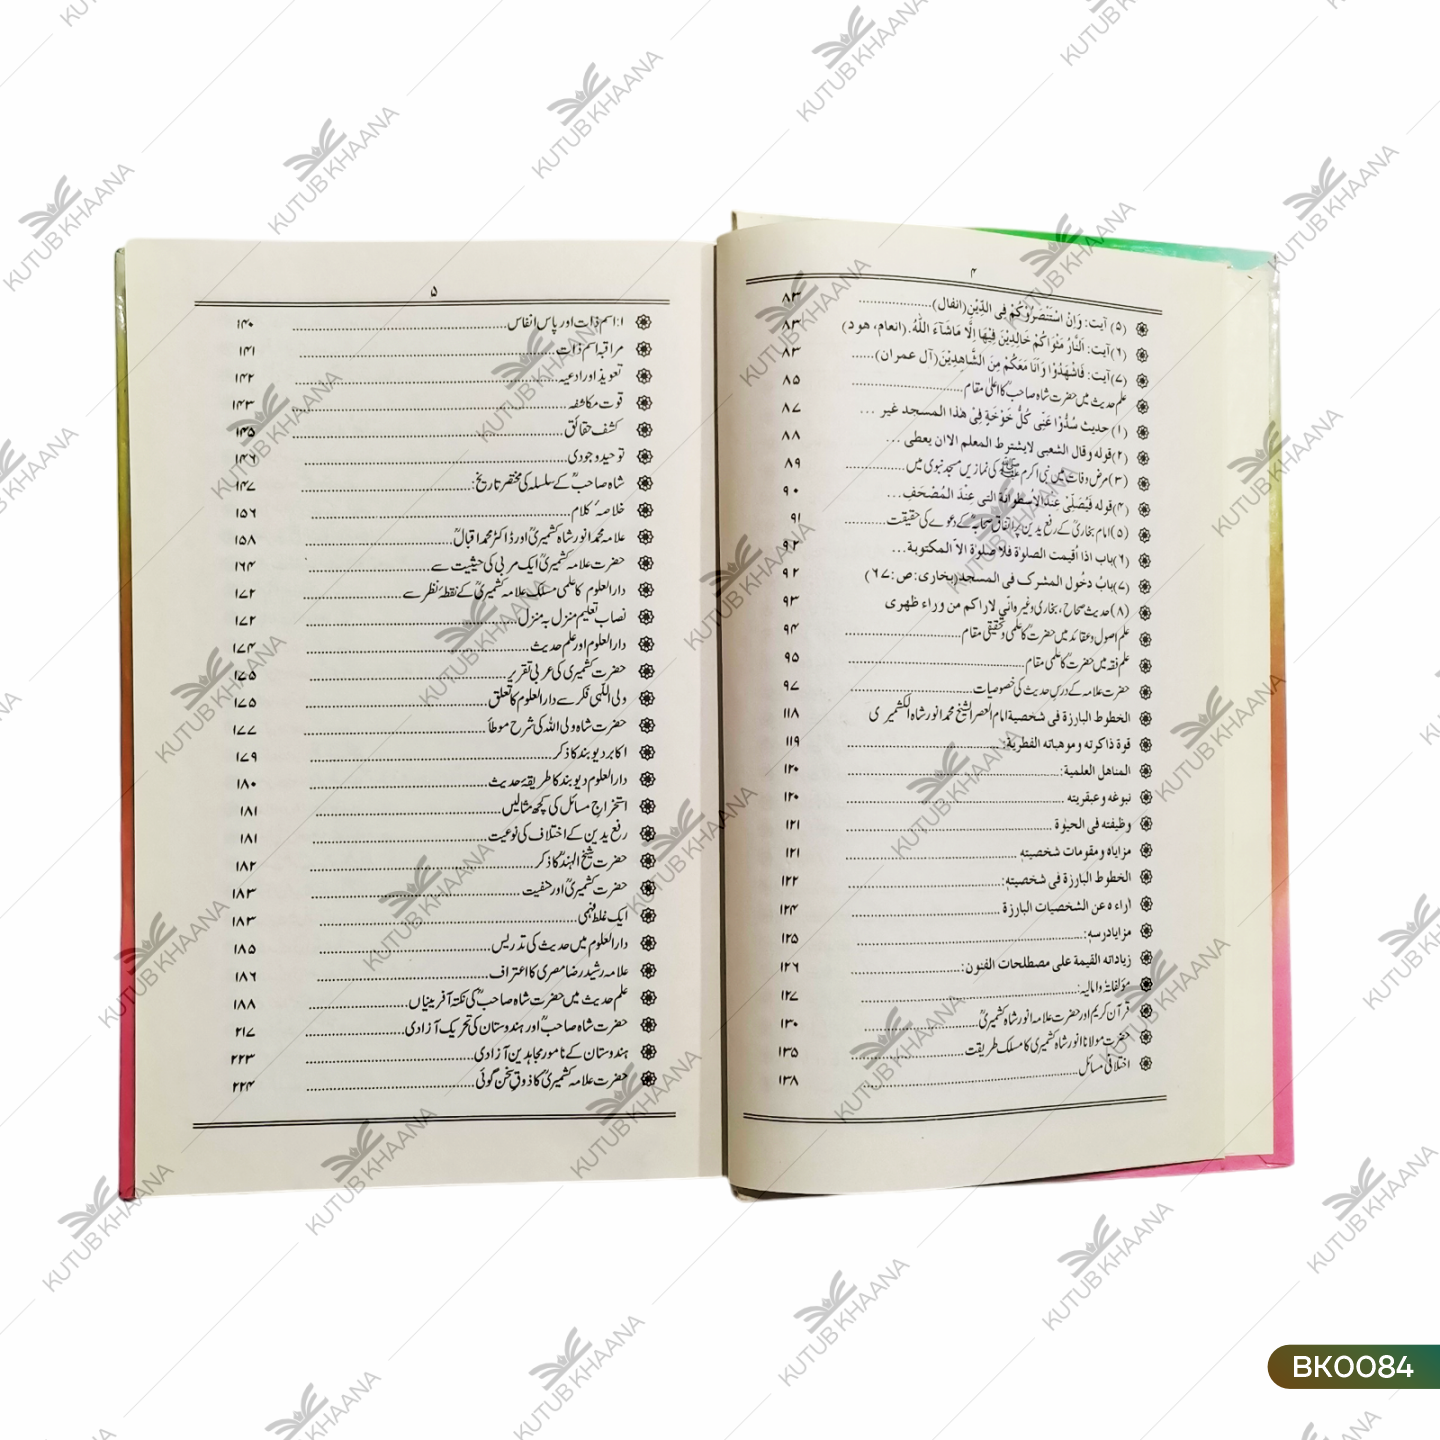 ۴
(۵) آیت: وَاِنْ اسْتَنْصَرُوْكُمْ فِی الدِّیْنِ (انفال) ۸۳
(۶) آیت: اَلنَّارُ مَثْوَاكُمْ خَالِدِیْنَ فِیْهَا اِلَّا مَاشَآءَ اللّٰهُ. (انعام، هود) ۸۳
(۷) آیت: فَاشْهَدُوْا وَاَنَا مَعَكُمْ مِنَ الشَّاهِدِیْنَ (آل عمران) ۸۳
علم حدیث میں حضرت شاہ صاحبؒ کا اعلیٰ مقام ۸۵
(۱) حدیث سُدُّوْا عَنِّی كُلَّ خَوْخَةٍ فِیْ هٰذَا المسجد غیر ... ۸۷
(۲) قوله وقال الشعبی لایشترط المعلم الاان یعطی ... ۸۸
(۳) مرض وفات میں نبی اکرم ﷺ کی نمازیں مسجد نبوی میں ۸۹
(۴) قوله فَیُصَلِّیْ عِنْدَالْاُسْطوانة التی عِنْدَ الْمُصْحَفِ... ۹۰
(۵) امام بخاریؒ کے رفع یدین پر اتفاق صحابہؓ کے دعوے کی حقیقت ۹۱
(۶) باب اذا اُقیمت الصلوٰة فلا صلوٰة الاّ المکتوبة... ۹۲
(۷) بابُ دخُول المشرک فی المسجد (بخاری: ص: ۶۷) ۹۲
(۸) حدیث صحاح، بخاری وغیرہ وانّی لاراکم من وراء ظهری ۹۳
علم اصول و عقائد میں حضرتؒ کا علمی و تحقیقی مقام ۹۴
علم فقہ میں حضرتؒ کا علمی مقام ۹۵
حضرت علامہ کے درس حدیث کی خصوصیات ۹۷
الخطوط البارزة فی شخصیة امام العصر الشیخ محمد انور شاہ الکشمیری ۱۱۸
قوة ذاکرته وموهباته الفطریة: ۱۱۹
المناهل العلمیة: ۱۲۰
نبوغه وعبقریته ۱۲۰
وظیفته فی الحیٰوة ۱۲۱
مزایاه ومقومات شخصیته ۱۲۱
الخطوط البارزة فی شخصیته: ۱۲۲
أراءه عن الشخصیات البارزة ۱۲۴
مزایادرسه: ۱۲۵
زیاداته القیمة علی مصطلحات الفنون: ۱۲۶
مؤلفاته وامالیه: ۱۲۷
قرآن کریم اور حضرت علامہ انور شاہ کشمیریؒ ۱۳۰
حضرت مولانا انور شاہ کشمیری کا مسلک طریقت ۱۳۵
اختلافی مسائل ۱۳۸
۵
۱: اسم ذات اور پاس انفاس ۱۴۰
مراقبہ اسم ذات ۱۴۱
تعویذ اور ادعیہ ۱۴۲
قوت مکاشفہ ۱۴۳
کشف حقائق ۱۴۵
توحید وجودی ۱۴۶
شاہ صاحبؒ کے سلسلہ کی مختصر تاریخ: ۱۴۷
خلاصۂ کلام ۱۵۶
علامہ محمد انور شاہ کشمیریؒ اور ڈاکٹر محمد اقبالؒ ۱۵۸
حضرت علامہ کشمیریؒ ایک مربی کی حیثیت سے ۱۶۴
دارالعلوم کا علمی مسلک علامہ کشمیریؒ کے نقطۂ نظر سے ۱۷۲
نصاب تعلیم منزل بہ منزل ۱۷۲
دارالعلوم اور علم حدیث ۱۷۴
حضرت کشمیری کی عربی تقریر ۱۷۵
ولی اللّٰہی فکر سے دارالعلوم کا تعلق ۱۷۵
حضرت شاہ ولی اللہ کی شرح موطأ ۱۷۷
اکابر دیوبند کا ذکر ۱۷۹
دارالعلوم دیوبند کا طریقۂ حدیث ۱۸۰
استخراجِ مسائل کی کچھ مثالیں ۱۸۱
رفع یدین کے اختلاف کی نوعیت ۱۸۱
حضرت شیخ الہندؒ کا ذکر ۱۸۲
حضرت کشمیریؒ اور حنفیت ۱۸۳
ایک غلط فہمی ۱۸۳
دارالعلوم میں حدیث کی تدریس ۱۸۵
علامہ رشید رضا مصری کا اعتراف ۱۸۶
علم حدیث میں حضرت شاہ صاحبؒ کی نکتہ آفرینیاں ۱۸۸
حضرت شاہ صاحبؒ اور ہندوستان کی تحریک آزادی ۲۱۷
ہندوستان کے نامور مجاہدین آزادی ۲۲۳
حضرت علامہ کشمیریؒ کا ذوقِ سخن گوئی ۲۲۴
BK0084
KUTUB KHAANA